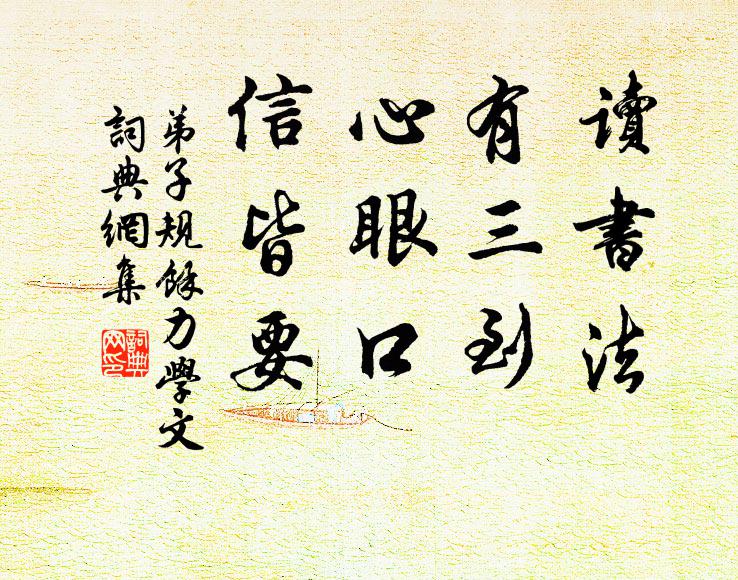 讀書法
有三到
心眼口
信皆要
弟子規餘力學文
詞典網集
詞典网印